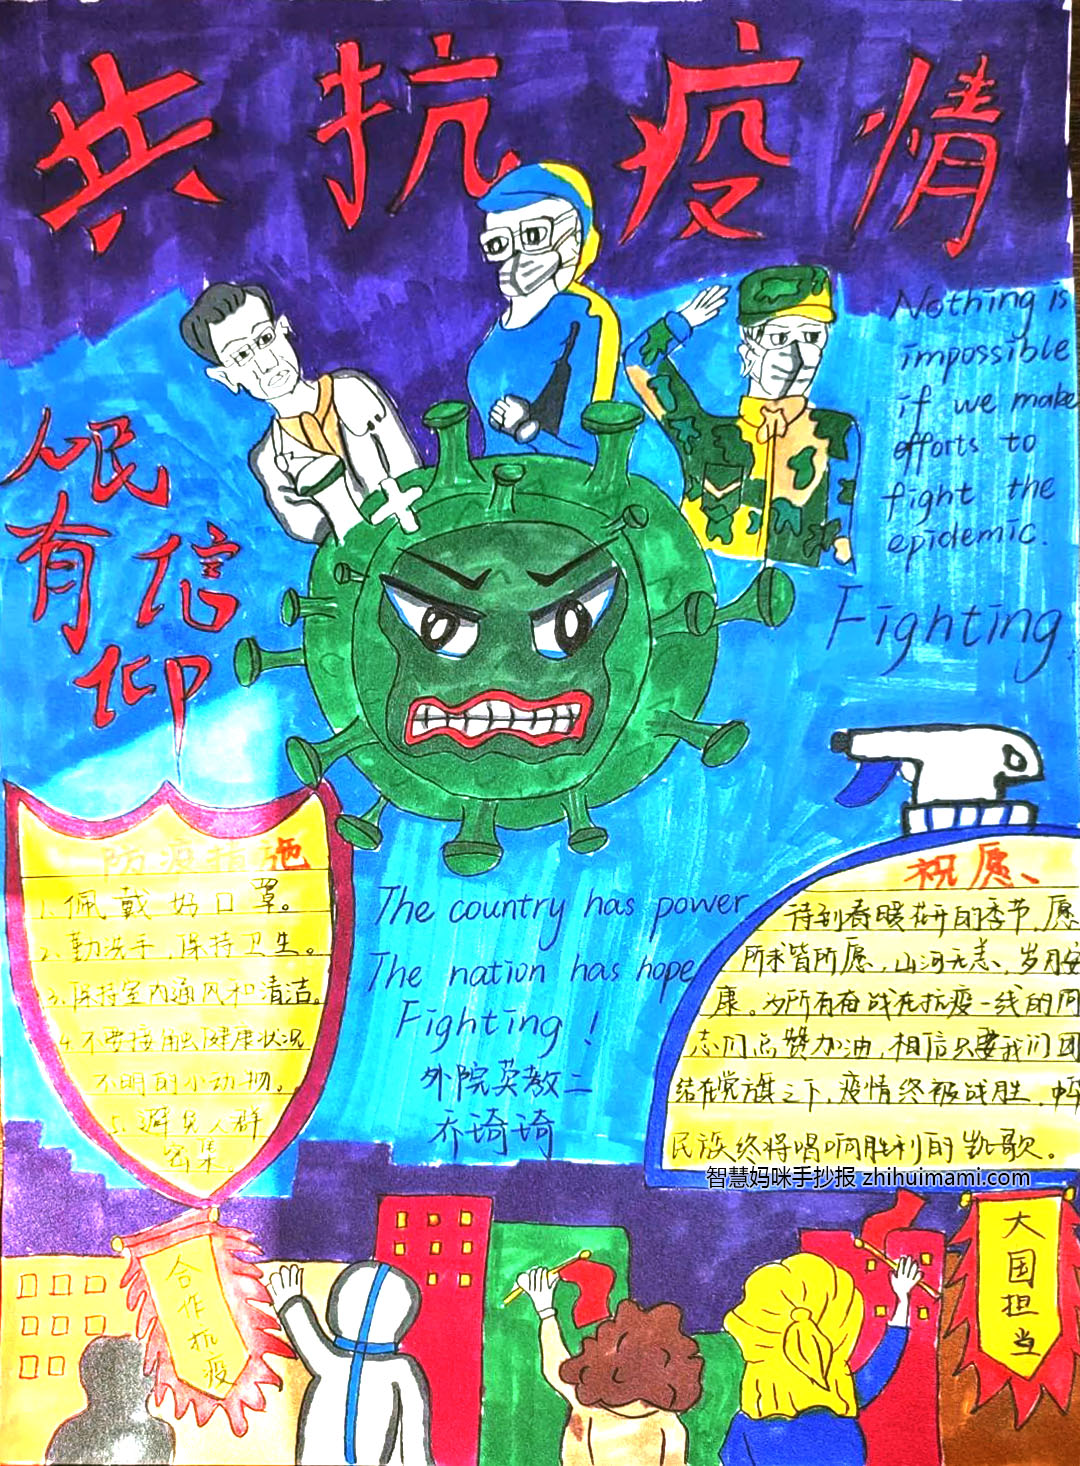 共抗疫情
Nothing is
impossible
if we make
efforts to
fight the
epidemic.
Fighting
人民
有信
仰
防疫措施
1.佩戴好口罩。
2.勤洗手,保持卫生。
3.保持室内通风和清洁。
4.不要接触健康状况
不明的小动物。
5.避免人群
密集.
The country has power
The nation has hope
Fighting !
外院英教二
乔琦琦
祝愿、
待到春暖花开的季节,愿
所求皆所愿,山河无恙、岁月安
康。为所有奋战在抗疫一线的同
志们点赞加油,相信只要我们团
结在党旗之下,疫情终被战胜,中华
民族终将唱响胜利的凯歌。
智慧妈咪手抄报 zhihuimami.com
合作抗疫
大国担当